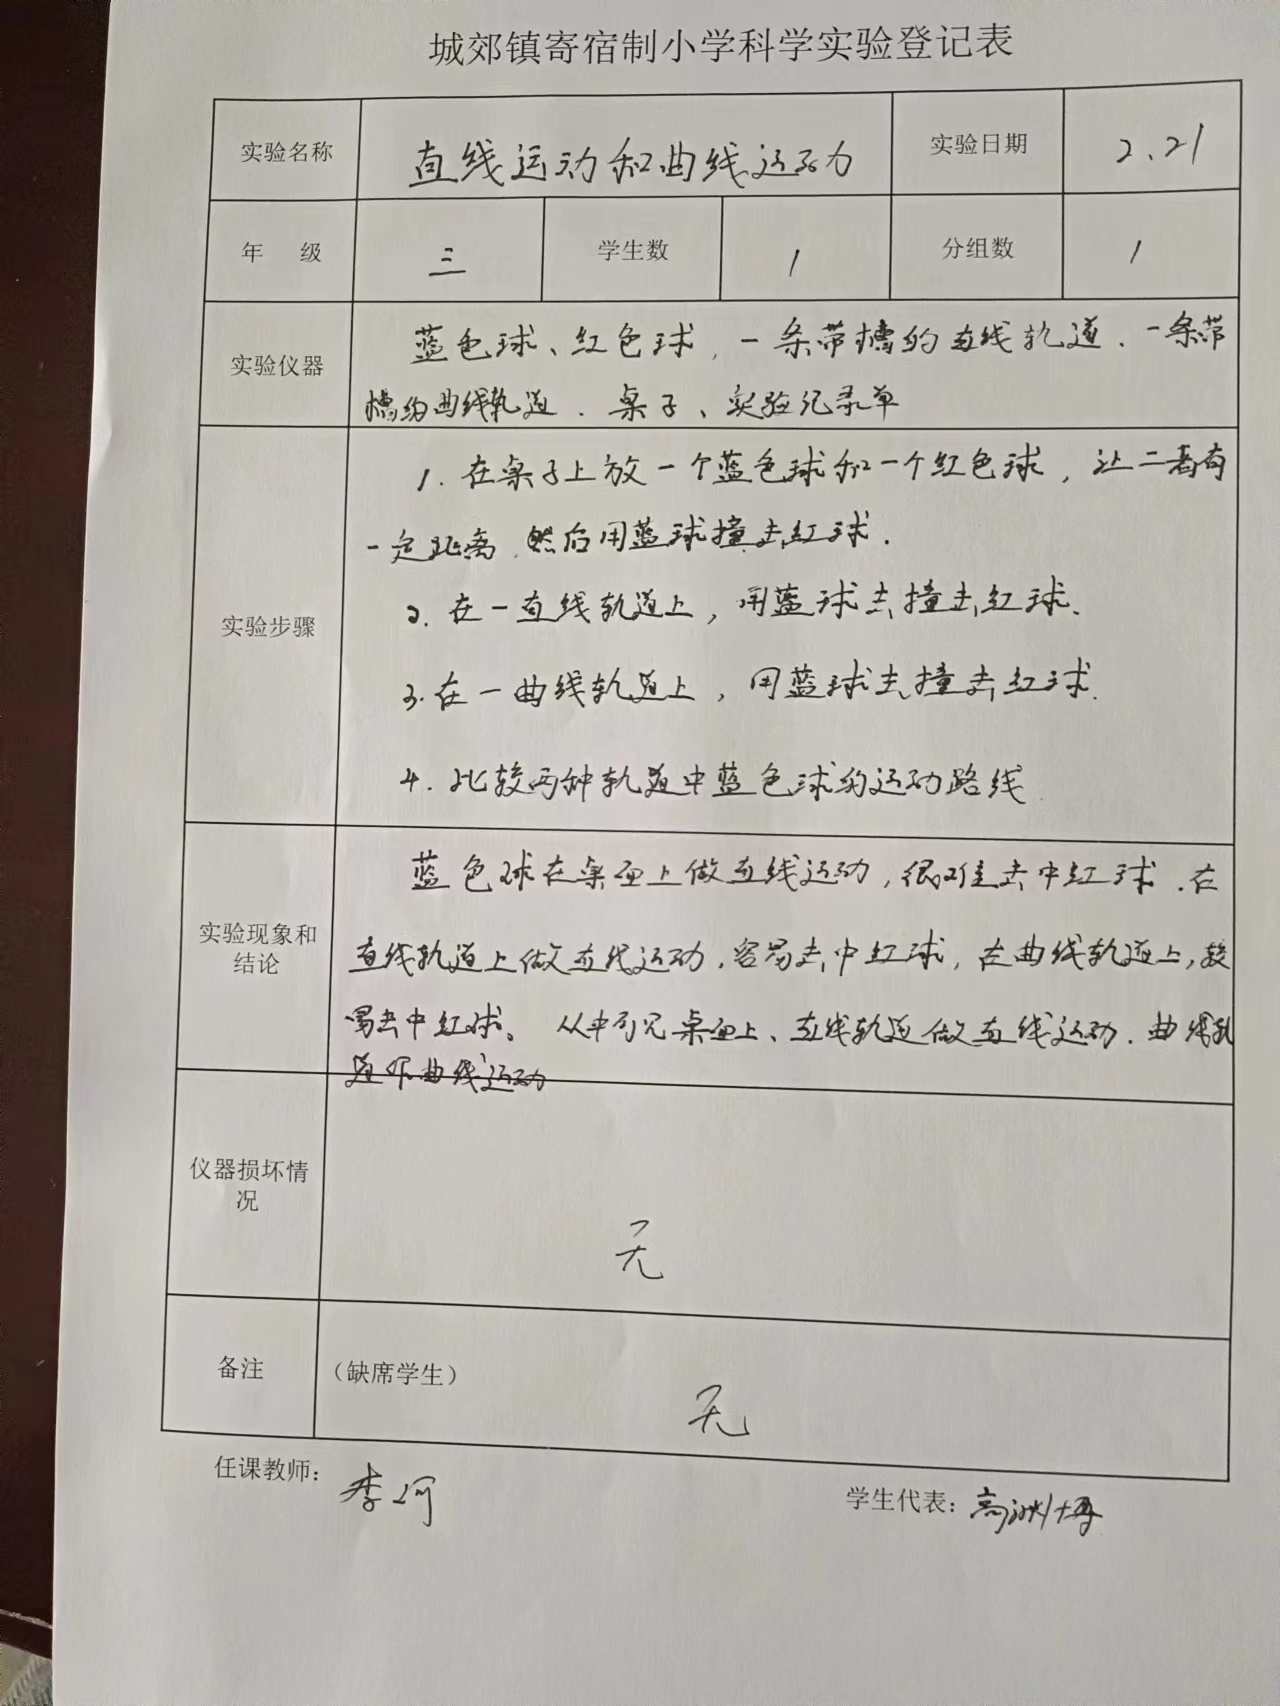 城郊镇寄宿制小学科学实验登记表
实验名称 直线运动和曲线运动 实验日期 2.21
年 级 三 学生数 1 分组数 1
实验仪器
蓝色球、红色球，一条带槽的直线轨道、一条带
槽的曲线轨道、桌子、实验记录单
实验步骤
1. 在桌子上放一个蓝色球和一个红色球，让二者有
一定距离，然后用蓝球撞击红球.
2. 在一直线轨道上，用蓝球去撞击红球.
3. 在一曲线轨道上，用蓝球去撞击红球.
4. 比较两种轨道中蓝色球的运动路线
实验现象和
结论
蓝色球在桌面上做直线运动，很难击中红球.在
直线轨道上做直线运动，容易击中红球，在曲线轨道上，较
易击中红球。从中可见桌面上、直线轨道做直线运动.曲线轨
道作曲线运动
仪器损坏情
况
无
备注 （缺席学生）
无
任课教师： 李河
学生代表： 高洲